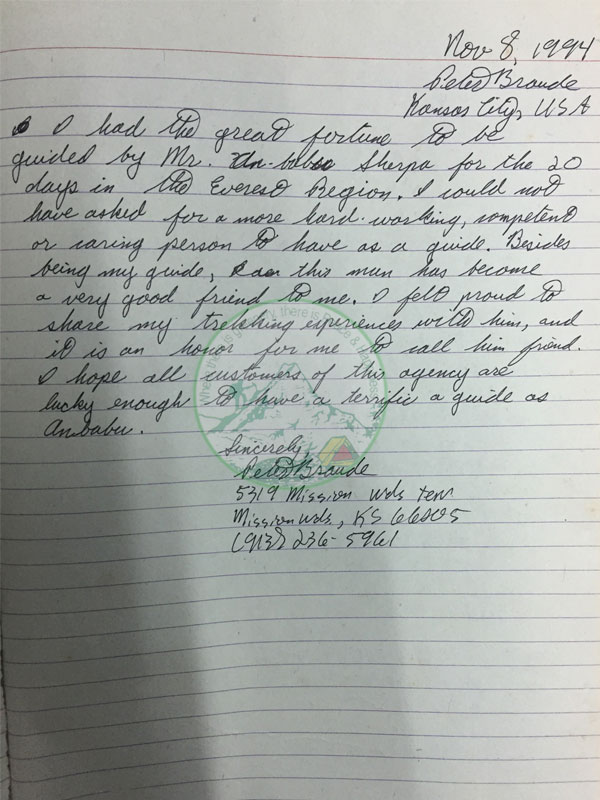 Nov 8, 1994
Peter Braude
Kansas City, USA
I had the great fortune to be
guided by Mr. An-babu Sherpa for the 20
days in the Everest Region. I could not
have asked for a more hard-working, competent
or caring person to have as a guide. Besides
being my guide, this man has become
a very good friend to me. I felt proud to
share my trekking experiences with him, and
it is an honor for me to call him friend.
I hope all customers of this agency are
lucky enough to have a terrific a guide as
Anbabu.
Sincerely,
Peter Braude
5319 Mission Wds Terr
Mission Wds, KS 66205
(913) 236-5961
there is Peace &